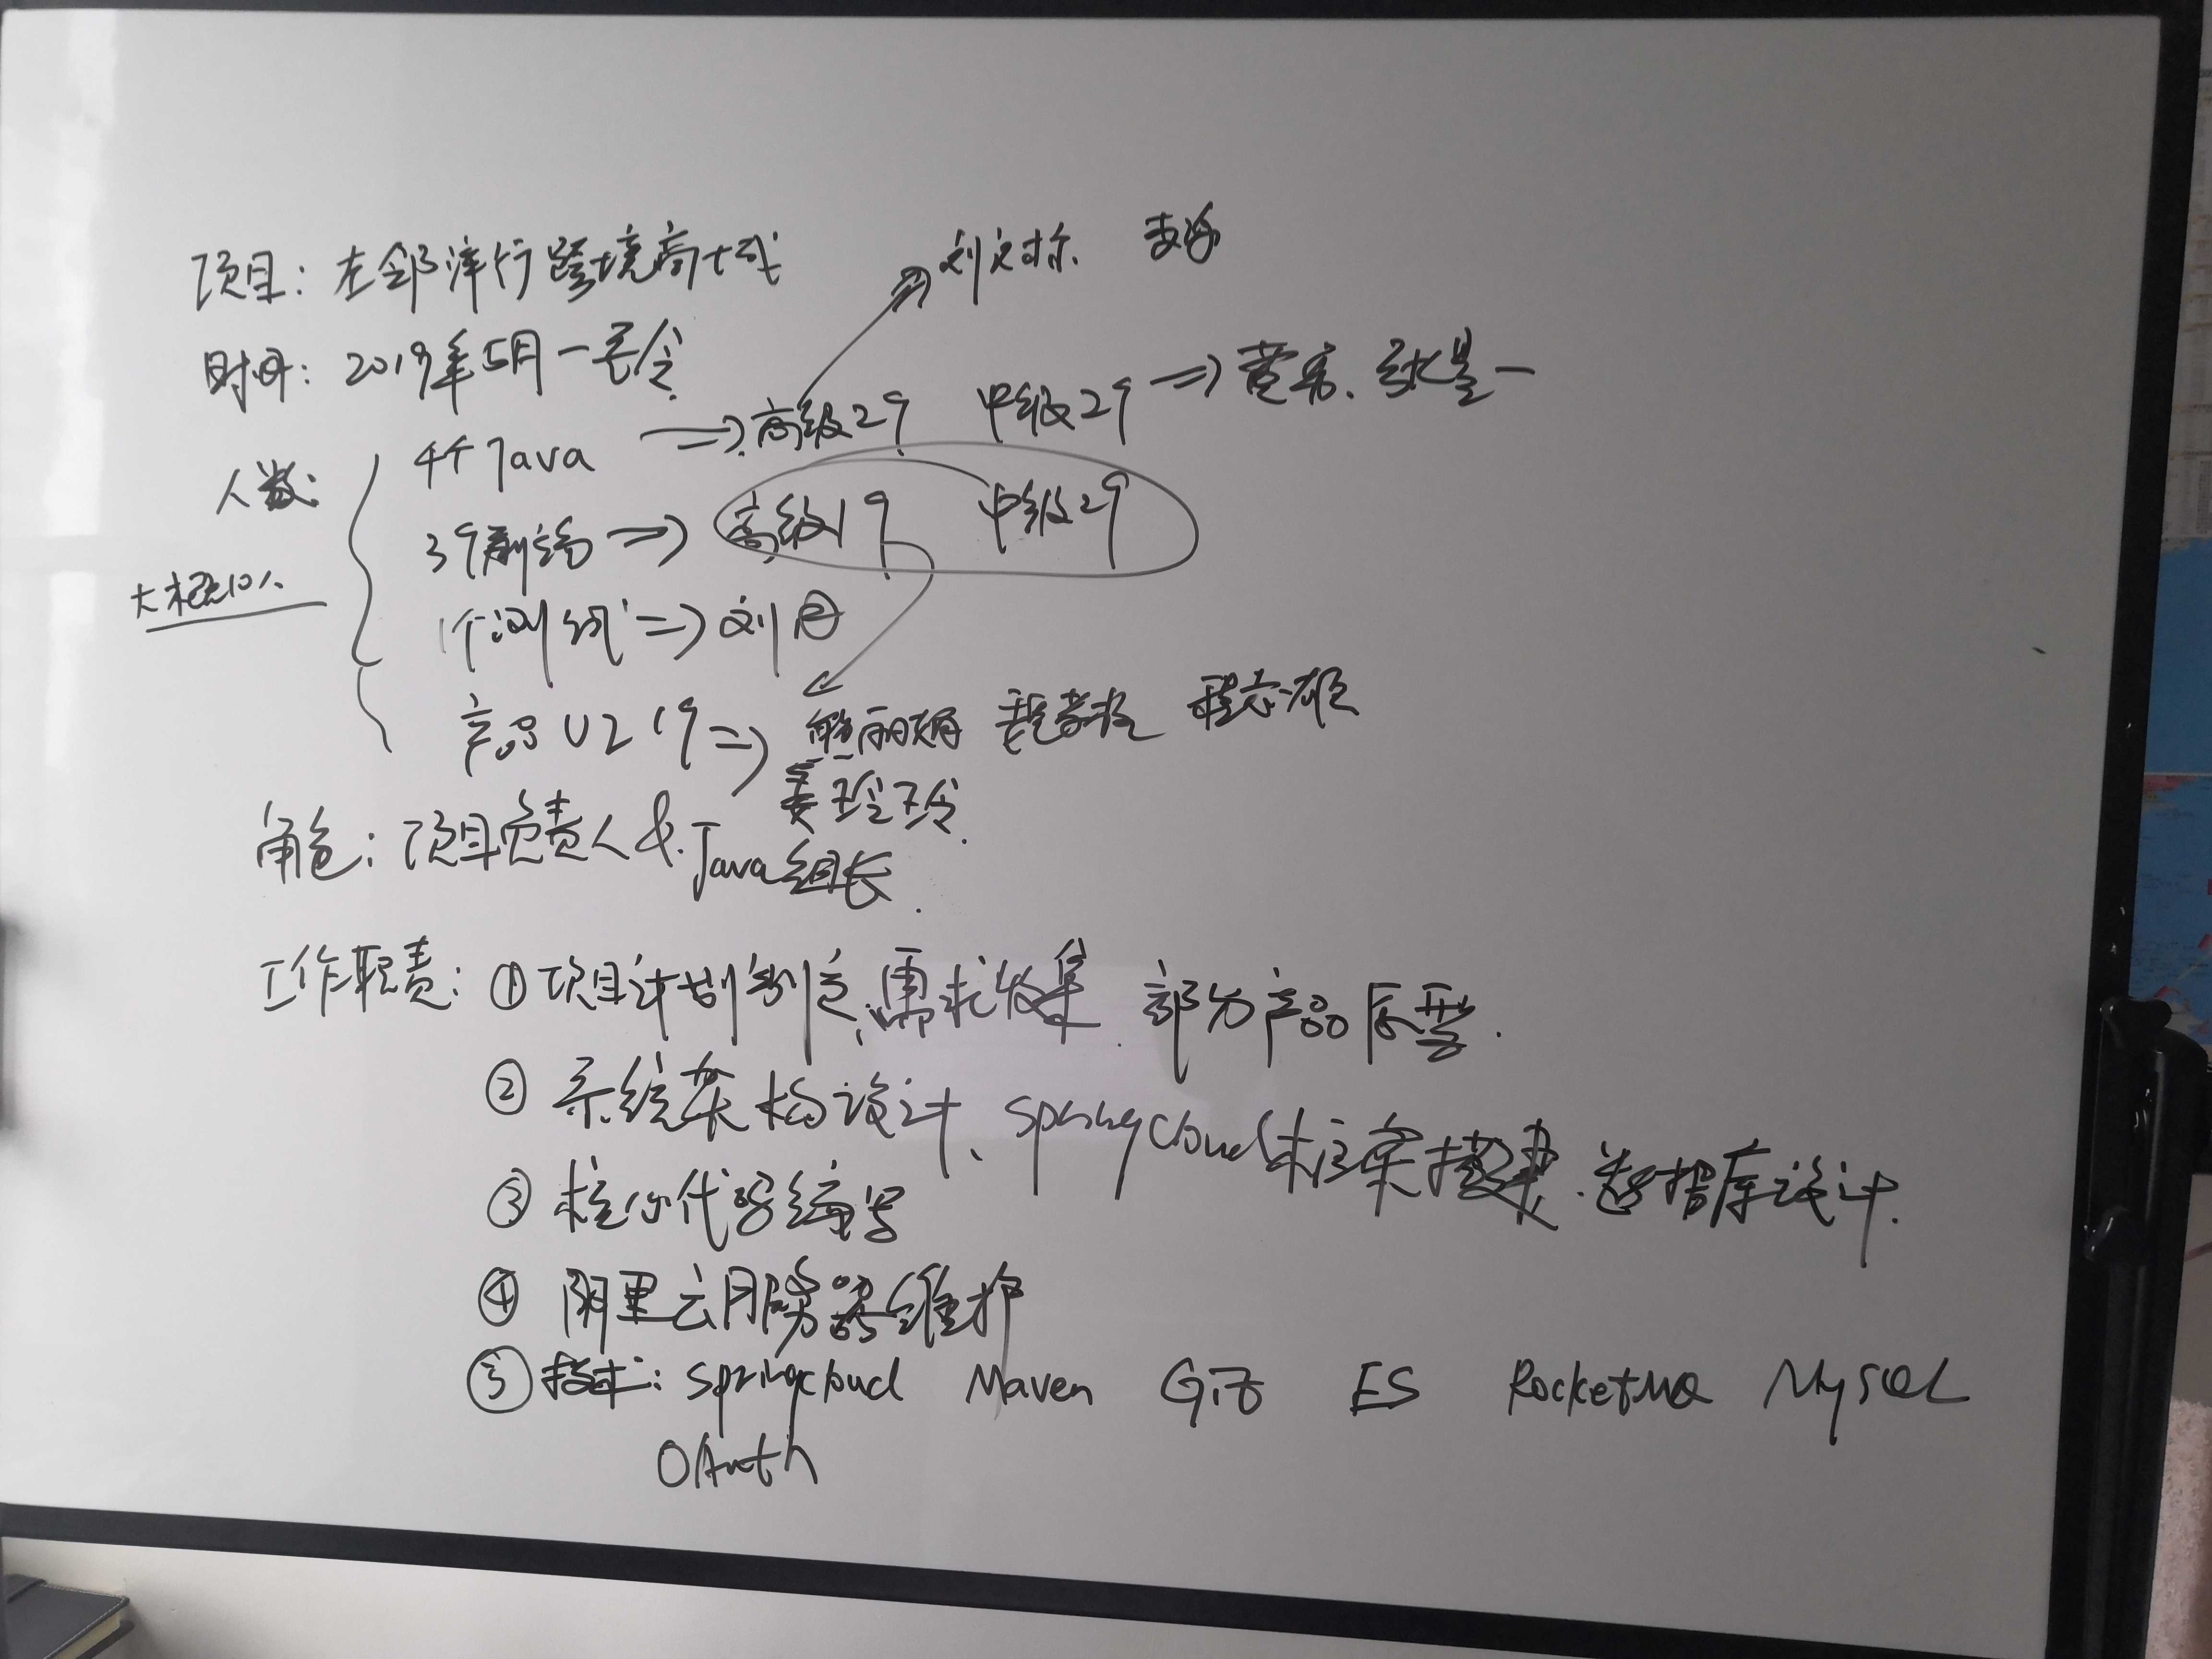 项目：左邻洋行跨境商城
刘文标 李海
时间：2019年5月—至今
人数：
4个Java => 高级2个 中级2个 =>
3个前端 => 高级1个 中级2个
大概10人
1个测试 => 刘丹
产品UI 1个 => 熊丽娟 程志雄
姜玲玲
角色：项目负责人 & Java组长
工作职责：① 项目计划制定、需求收集 部分产品原型.
② 系统架构设计、SpringCloud框架搭建、数据库设计.
③ 核心代码编写
④ 阿里云服务器维护
⑤ 技术：Springcloud Maven Git ES RocketMQ MySQL
OAuth